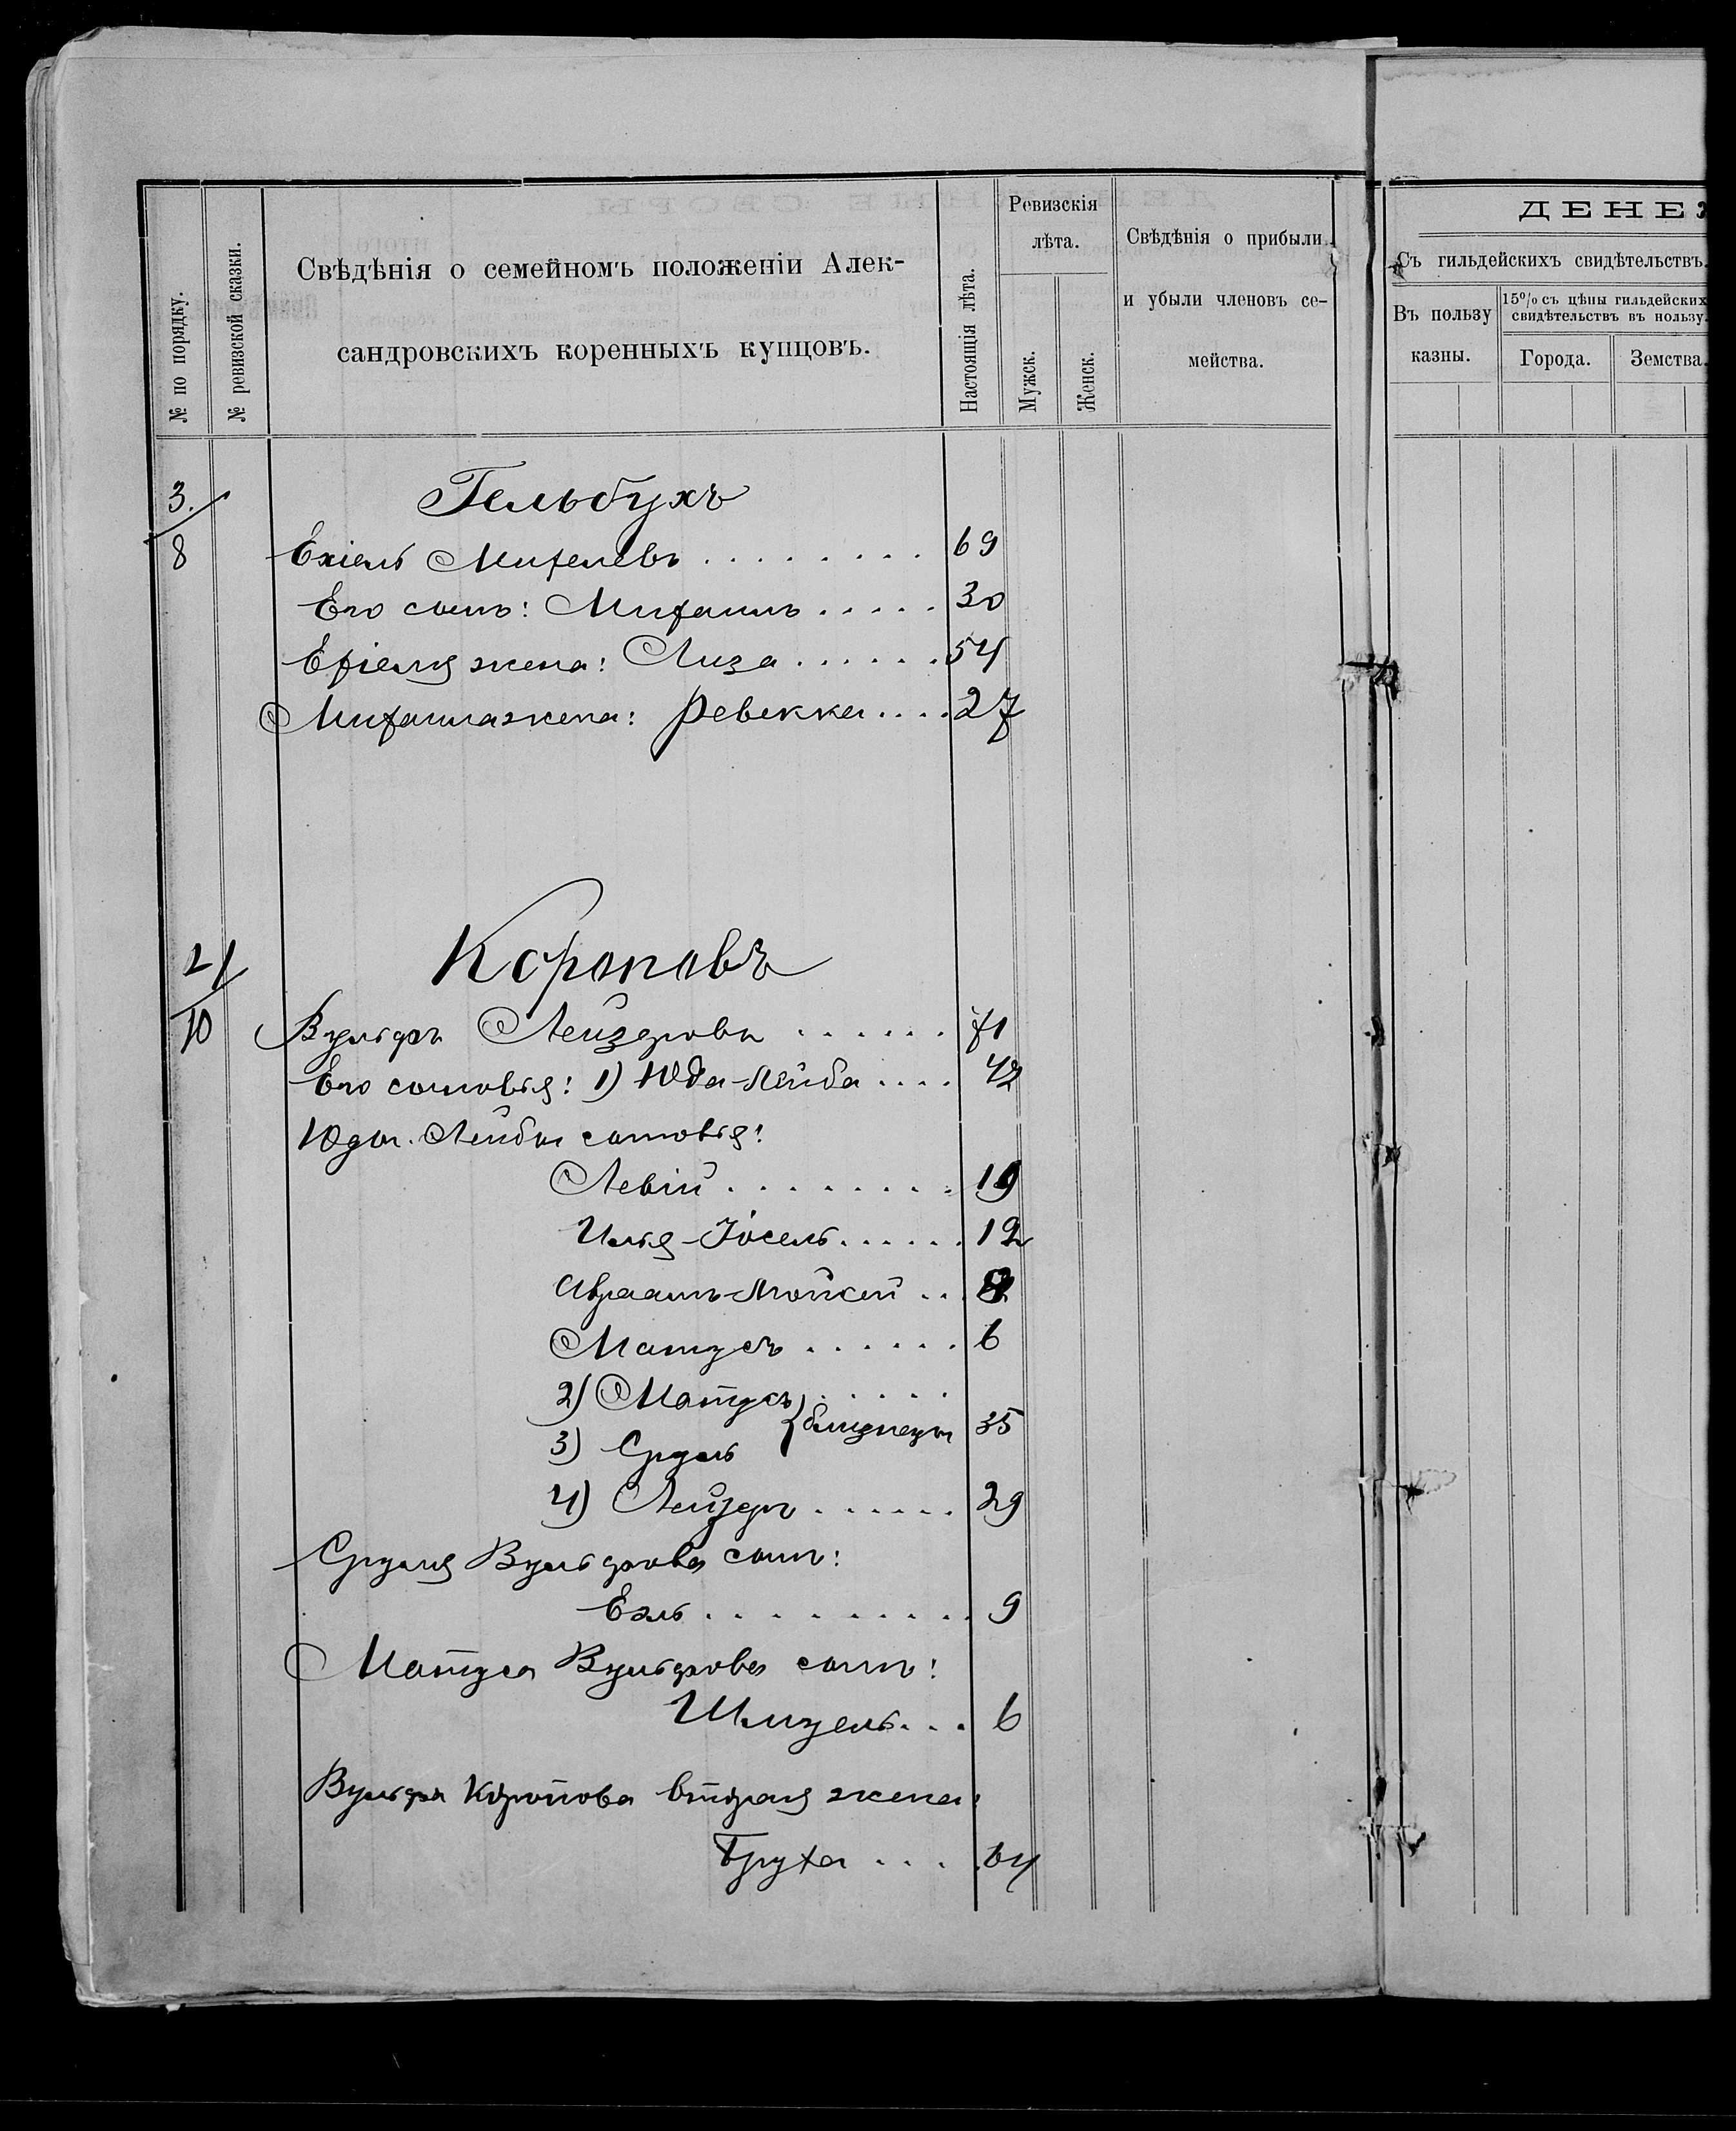 № по порядку.
№ ревизской сказки.
Свѣдѣнія о семейномъ положеніи Алек-
сандровскихъ коренныхъ купцовъ.
Настоящія лѣта.
Ревизскія
лѣта.
Мужск.
Женск.
Свѣдѣнія о прибыли
и убыли членовъ се-
мейства.
ДЕНЕЖ
Съ гильдейскихъ свидѣтельствъ.
Въ пользу
казны.
15% съ цѣны гильдейских
свидѣтельствъ въ пользу
Города.
Земства.
3.
Гельбухъ
8 Ехіель Михелевъ . . . . . . . . 69
Его сынъ: Михаилъ . . . . . 30
Ехіеля жена: Лиза . . . . . . 54
Михаила жена: Ревекка . . . . 27
4
Короповъ
10 Вульфъ Лейзеровъ . . . . . . 71
Его сыновья: 1) Юда-Лейба . . . . 42
Юды-Лейбы сыновья:
Левій . . . . . . . . 19
Илья-Іосель . . . . . . 12
Авраамъ-Мойсей . . .
Матусъ . . . . . . 6
2) Матусъ . . . . .
{близнецы 35
3) Сруль
4) Лейзеръ . . . . . . 29
Сруля Вульфова сынъ:
Еэль . . . . . . . . . . 9
Матуса Вульфова сынъ:
Шмуель . . . 6
Вульфа Коропова вторая жена:
Бруха . . . . 64